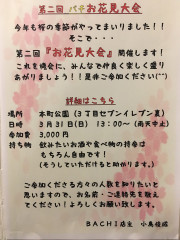 第二回 バチお花見大会
今年も桜の季節がやってまいりました！！
そこで・・・
第二回『お花見大会』開催します！
これを機会に、みんなで仲良く楽しく盛り
あがりましょう！！是非ご参加ください(^^)
詳細はこちら
場所 本町公園（３丁目セブンイレブン裏）
日時 3月31日（日） 13：00～（雨天中止）
参加費 3,000円
持ち物 飲みたいお酒や食べ物の持参は
もちろん自由です！
（そうしていただけると助かります）
ご参加くださる方々の人数を知りたいと
思いますので、お名前・ご連絡先を教え
てください！よろしくお願い致します。
BACHI店主 小島